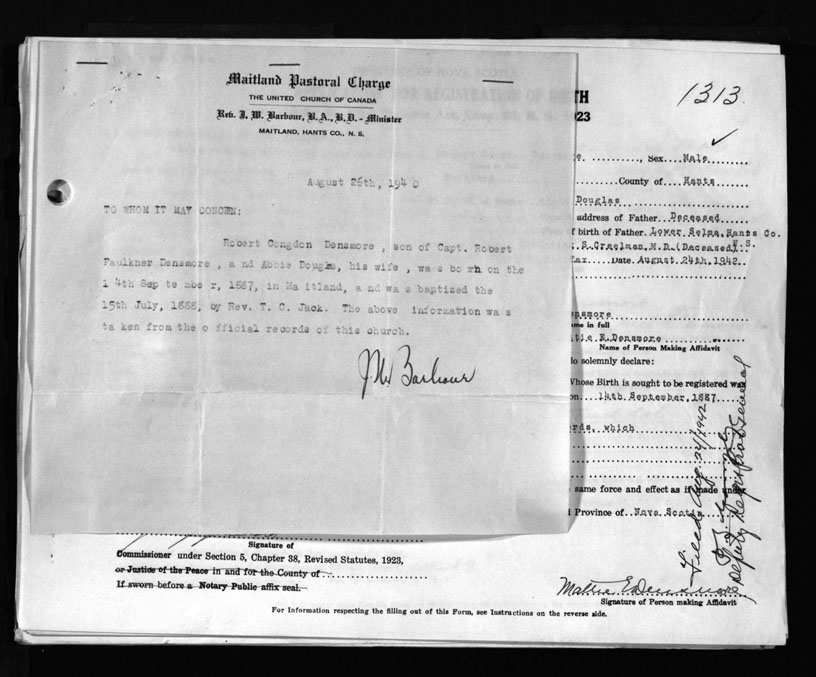 Maitland Pastoral Charge
THE UNITED CHURCH OF CANADA
Rev. J. W. Barbour, B.A., B.D. - Minister
MAITLAND, HANTS CO., N. S.
August 26th, 1940
TO WHOM IT MAY CONCEN:
Robert Congdon Densmore, son of Capt. Robert
Faulkner Densmore, a nd Abbie Dougls, his wife, wa s bo rn on the
1 4th Sep te mbe r, 1887, in Ma itland, a nd wa s baptized the
15th July, 1888, by Rev. T. C. Jack. The above information wa s
ta ken from the o fficial records of this church.
J W Barbour
1313
923
Sex Male
County of Hants
Douglas
address of Father Deceased
f birth of Father. Lower Selma, Hants Co.
N.S.
S. Creelman, M.D. (Deceased)
Date. August 24th, 1942.
me in full
E. Densmore
Name of Person Making Affidavit
do solemnly declare:
Whose Birth is sought to be registered was
on 14th September, 1887
rds, which
same force and effect as if made under
Province of Nova Scotia
Filed Aug. 24/1942
Deputy Registrar General
Signature of
Commissioner under Section 5, Chapter 38, Revised Statutes, 1923,
or Justice of the Peace in and for the County of
If sworn before a Notary Public affix seal.
Signature of Person making Affidavit
For Information respecting the filling out of this Form, see Instructions on the reverse side.